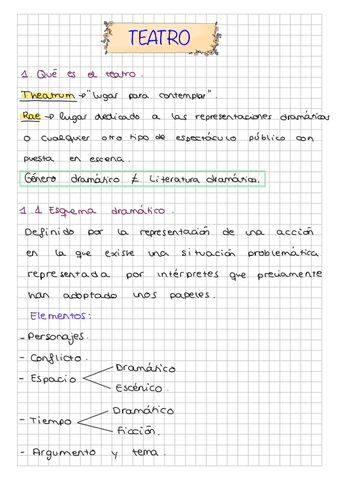 TEATRO
1. Qué es el teatro.
Theatrum → "lugar para contemplar"
Rae → lugar dedicado a las representaciones dramáticas
o cualquier otro tipo de espectáculo público con
puesta en escena.
Género dramático ≠ Literatura dramática.
1.1 Esquema dramático.
Definido por la representación de una acción
en la que existe una situación problemática
representada por intérpretes que previamente
han adoptado unos papeles.
Elementos:
- Personajes.
- Conflicto.
- Espacio
Dramático
Escénico.
- Tiempo
Dramático
Ficción.
- Argumento y tema.